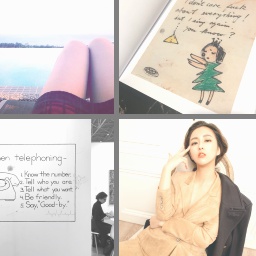 I don't care fuck
about everything!
but I sing again.
you know?
en telephoning-
1. Know the number.
2. Tell who you are
3. Tell what you want
4. Be friendly.
5. Say, "Good-by."